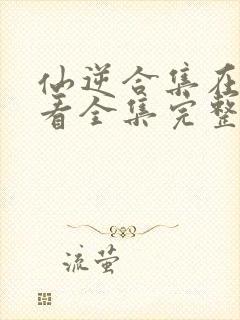 仙逆合集在
着全集完整
流萤